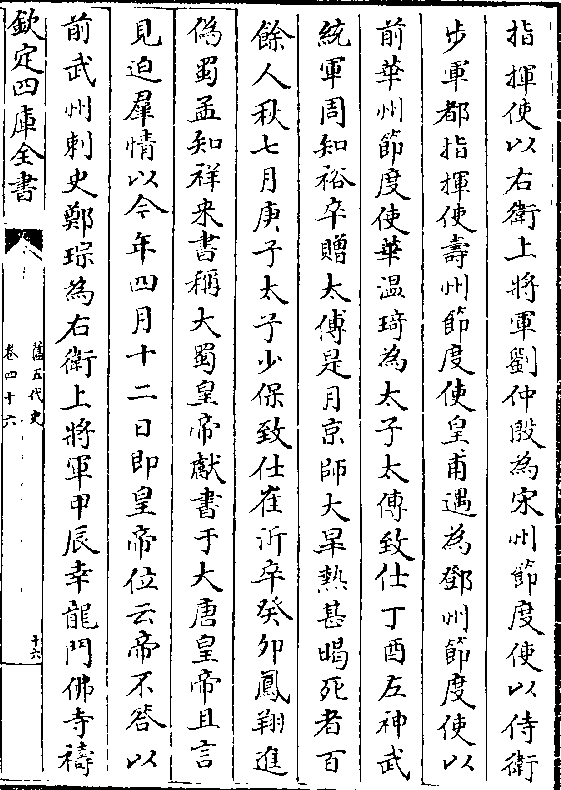 指揮使以右衛上將軍劉仲殷為宋州節度使以侍衛
步軍都指揮使壽州節度使皇甫遇為鄧州節度使以
前華州節度使華温琦為太子太傅致仕丁酉左神武
統軍周知裕卒贈太傅是月京師大旱熱甚暍死者百
餘人秋七月庚子太子少保致仕崔沂卒癸卯鳳翔進
偽蜀孟知祥来書稱大蜀皇帝獻書于大唐皇帝且言
見迫羣情以今年四月十二日即皇帝位云帝不答以
前武州刺史鄭琮為右衛上將軍甲辰幸龍門佛寺禱
欽定四庫全書
舊五代史
卷四十六
十六